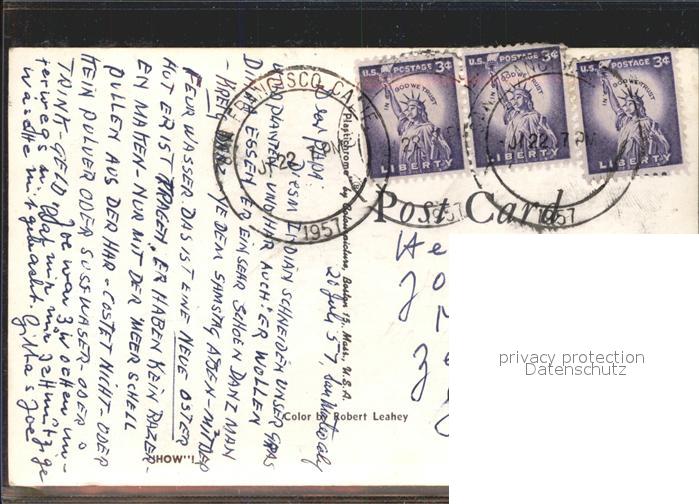 U.S. POSTAGE 3¢
IN GOD WE TRUST
LIBERTY
U.S. POSTAGE 3¢
IN GOD WE TRUST
LIBERTY
U.S. POSTAGE 3¢
IN GOD WE TRUST
LIBERTY
FRANCISCO CALIF
JY 22 7 PM
1957
JY 22 7 PM
1957
1957
Post Card
Plastichrome by Colourpicture, Boston 15, Mass. U.S.A.
Color by Robert Leahey
20 July 57, San Mateo
DIESEM INDIAN SCHNEIDEN UNSER GRAS
UND PLANTEN UND HAR AUCH. ER WOLLEN
ESSEN ER EIN SEHR SCHOEN DANZ MAN
YEDEM SAMSTAG ABEN-MIT DER
FEUR WASSER. DAS IST EINE NEUE OSTER
HUT ER IST TRAGEN. ER HABEN KEIN RAZER-
EN MAHEN-NUR MIT DER MEER SCHELL
PULLEN AUS DER HAR-COSTET NICHT-ODER
KEIN PULVER ODER SUSSWASER-ODER
TRINK-GELD Joe war 3 Wochen un-
terwegs
Wäsche mitgebracht. Joe
SHOW"!
He
privacy protection
Datenschutz